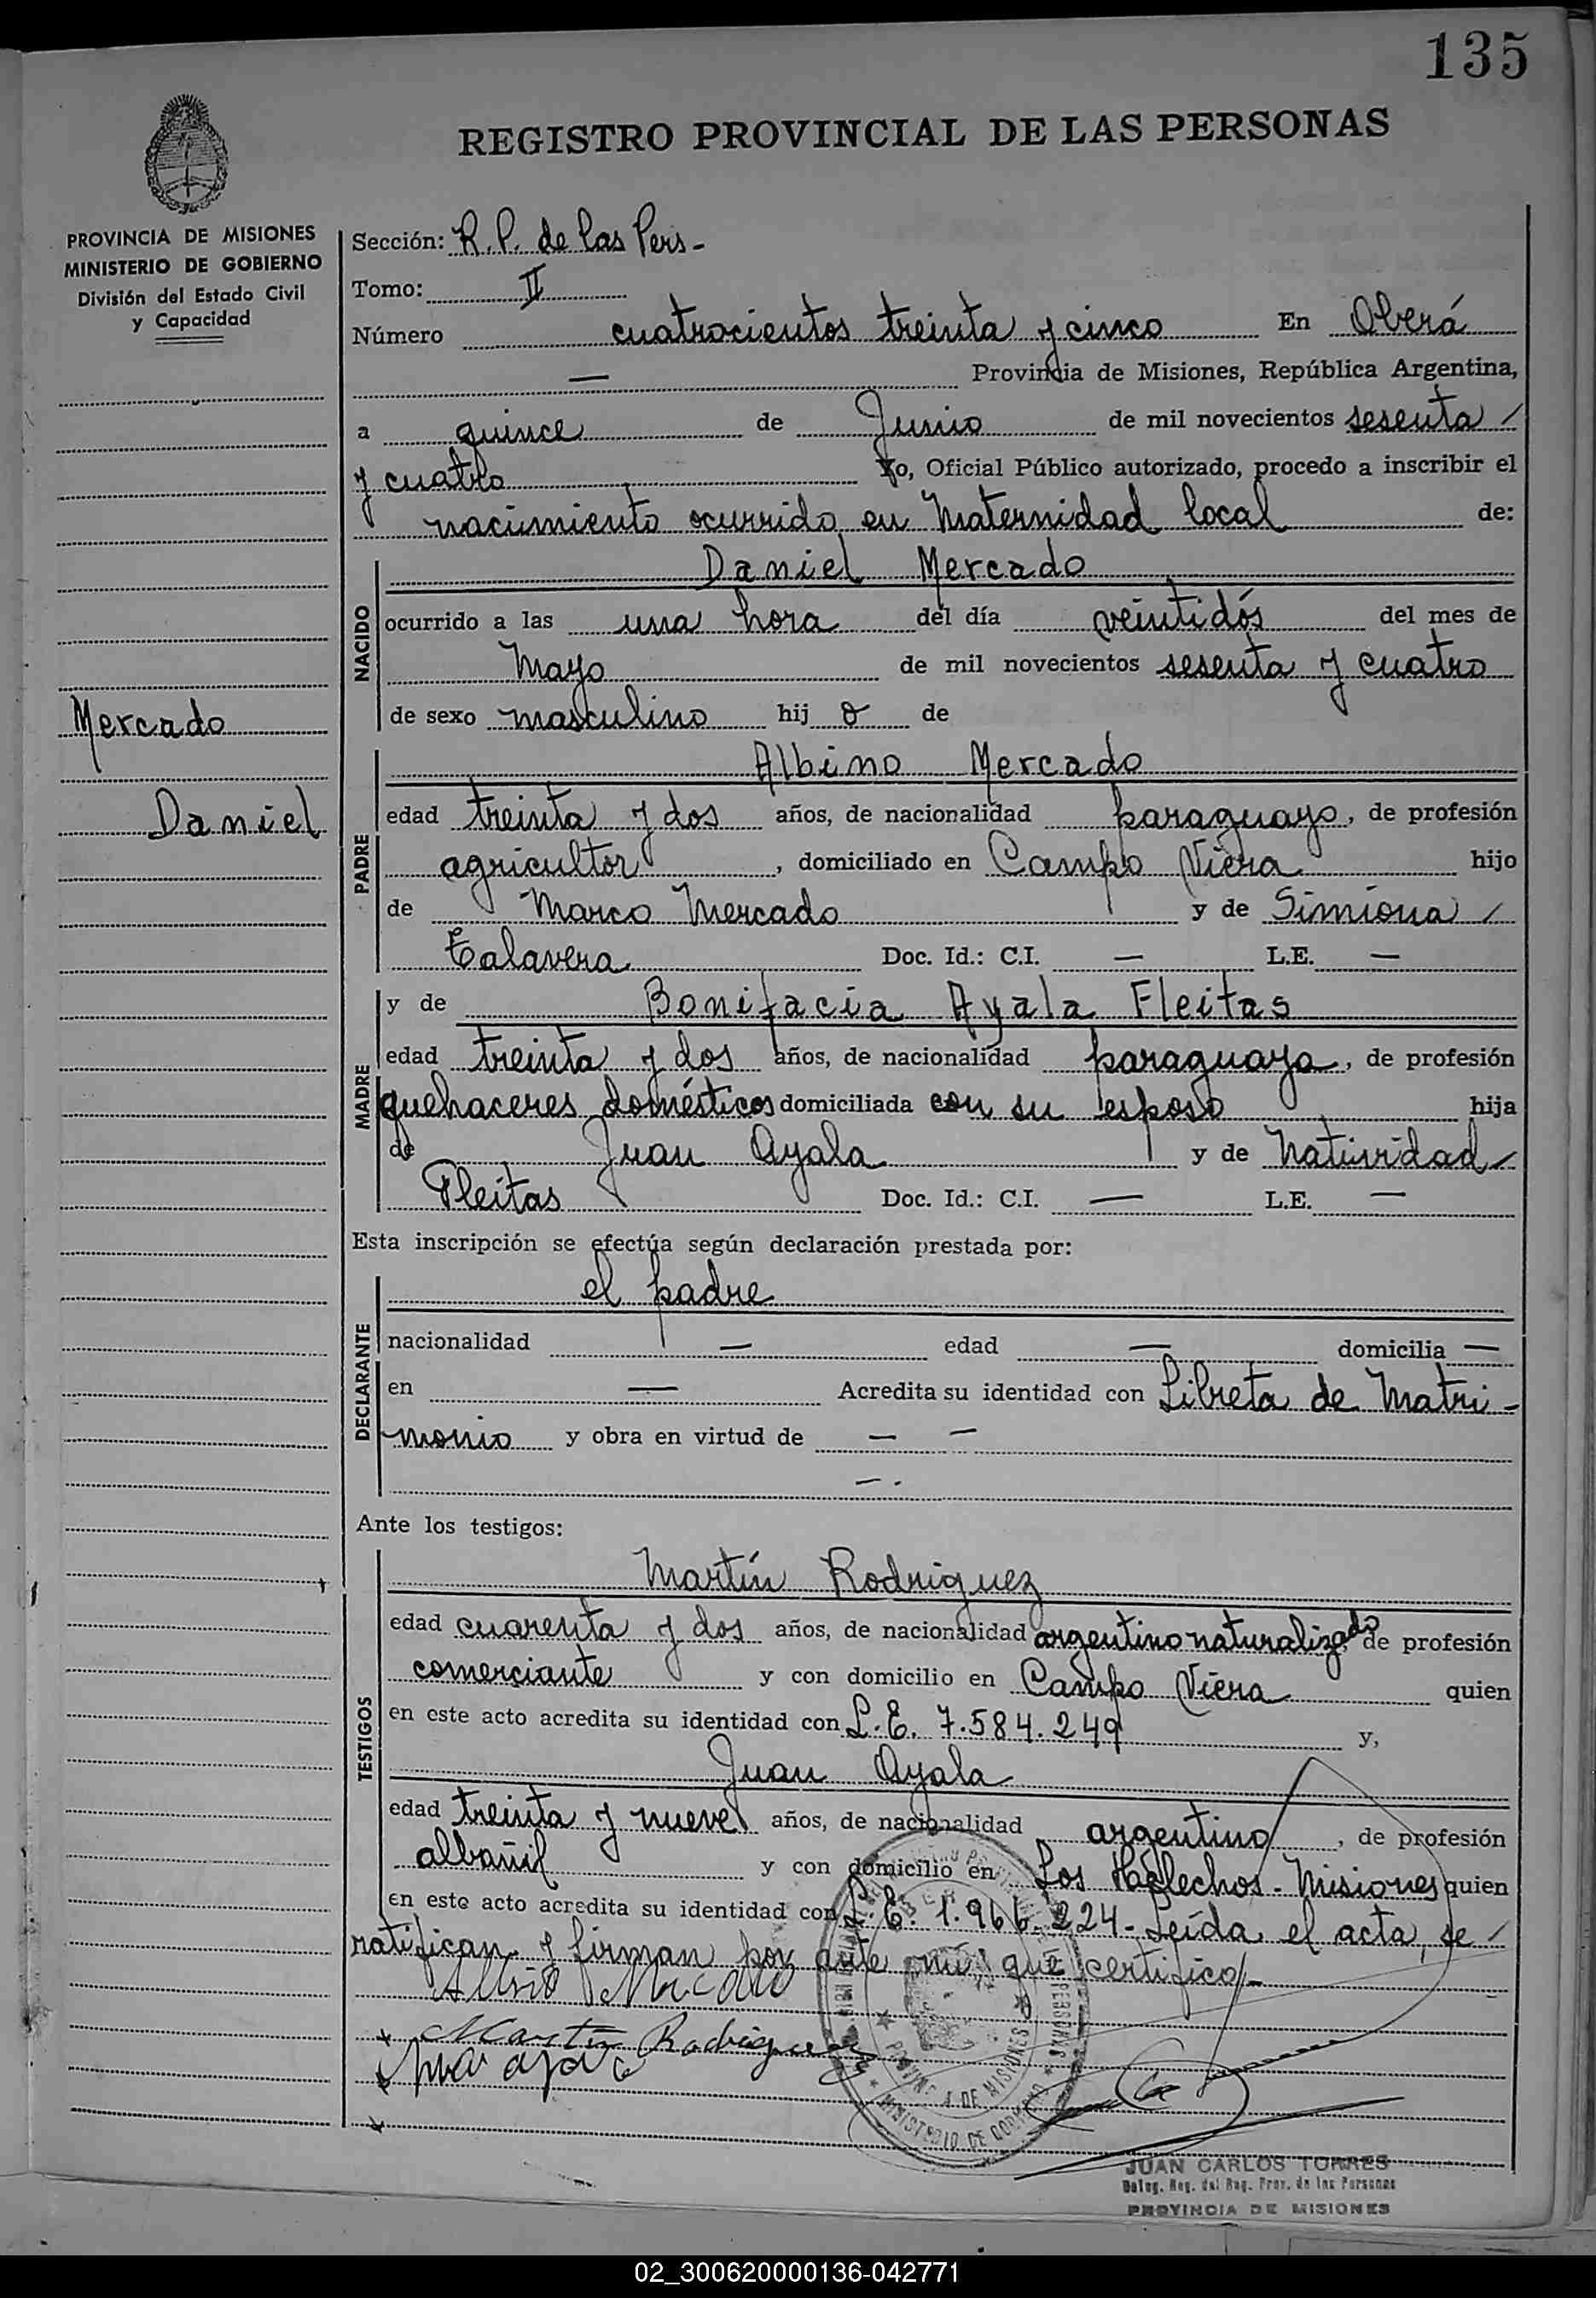 135
REGISTRO PROVINCIAL DE LAS PERSONAS
PROVINCIA DE MISIONES
MINISTERIO DE GOBIERNO
División del Estado Civil
y Capacidad
Mercado
Daniel
Sección: R. P. de las Pers-
Tomo: II
Número cuatrocientos treinta y cinco En Oberá
— Provincia de Misiones, República Argentina,
a quince de Junio de mil novecientos sesenta /
y cuatro Yo, Oficial Público autorizado, procedo a inscribir el
nacimiento ocurrido en Maternidad local de:
NACIDO
Daniel Mercado
ocurrido a las una hora del día veintidós del mes de
Mayo de mil novecientos sesenta y cuatro
de sexo masculino hij o de
PADRE
Albino Mercado
edad treinta y dos años, de nacionalidad paraguayo, de profesión
agricultor, domiciliado en Campo Viera hijo
de Marco Mercado y de Simiona /
Talavera Doc. Id.: C.I. — L.E. —
MADRE
y de Bonifacia Ayala Fleitas
edad treinta y dos años, de nacionalidad paraguaya, de profesión
quehaceres domésticos domiciliada con su esposo hija
de Juan Ayala y de Natividad /
Fleitas Doc. Id.: C.I. — L.E. —
Esta inscripción se efectúa según declaración prestada por:
DECLARANTE
el padre
nacionalidad — edad — domicilia —
en — Acredita su identidad con Libreta de Matri-
monio y obra en virtud de — —
— -
Ante los testigos:
TESTIGOS
Martín Rodriguez
edad cuarenta y dos años, de nacionalidad argentino naturalizado de profesión
comerciante y con domicilio en Campo Viera quien
en este acto acredita su identidad con L. E. 7.584.249 y,
Juan Ayala
edad treinta y nueve años, de nacionalidad argentino, de profesión
albañil y con domicilio en Los Helechos - Misiones quien
en este acto acredita su identidad con L. E. 1.966.224 - Leída el acta, se /
ratifican y firman por ante mí que certifico -
Martín Rodriguez
PROVINCIA DE MISIONES
MINISTERIO DE GOBIERNO
JUAN CARLOS TORRES
Deleg. Reg. del Reg. Prov. de las Personas
PROVINCIA DE MISIONES
02_300620000136-042771